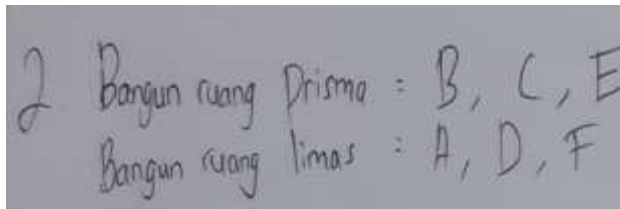 2 Bangun ruang Prisma : B, C, E
Bangun ruang limas : A, D, F